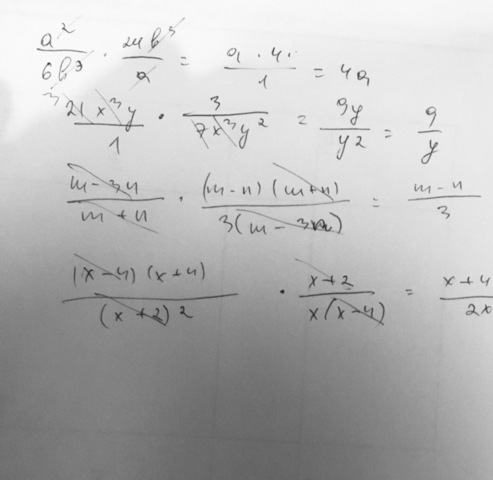 a²/6b³ · 24b³/a = a · 4/1 = 4a
³21x³y/1 · 3/7x³y² = 9y/y² = 9/y
m-3n/m+n · (m-n)(m+n)/3(m-3n) = m-n/3
(x-4)(x+4)/(x+2)2 · x+2/x(x-4) = x+4/2x